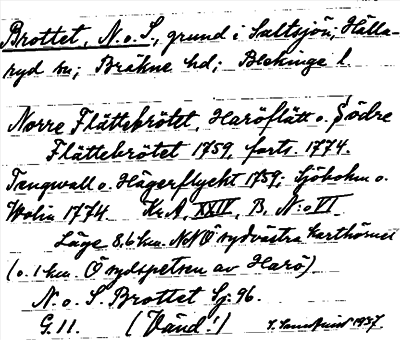 Brottet, N. o. S., grund i Saltsjön, Hälla-
ryd sn; Bräkne hd; Blekinge l.
Norre Flättebrötet, Haröflätt o. Södre
Flättebrötet 1759, forts. 1774.
Tengwall o. Hägerflycht 1759; Sjöbohm o.
Wolin 1774. Kr.A. XXIV, B, N:o VI.
Läge 8,6 km. NNÖ sydvästra karthörnet
(o. 1 km. Ö sydspetsen av Harö)
N. o. S. Brottet Sj. 96.
G. 11. (Vänd!) 1937.